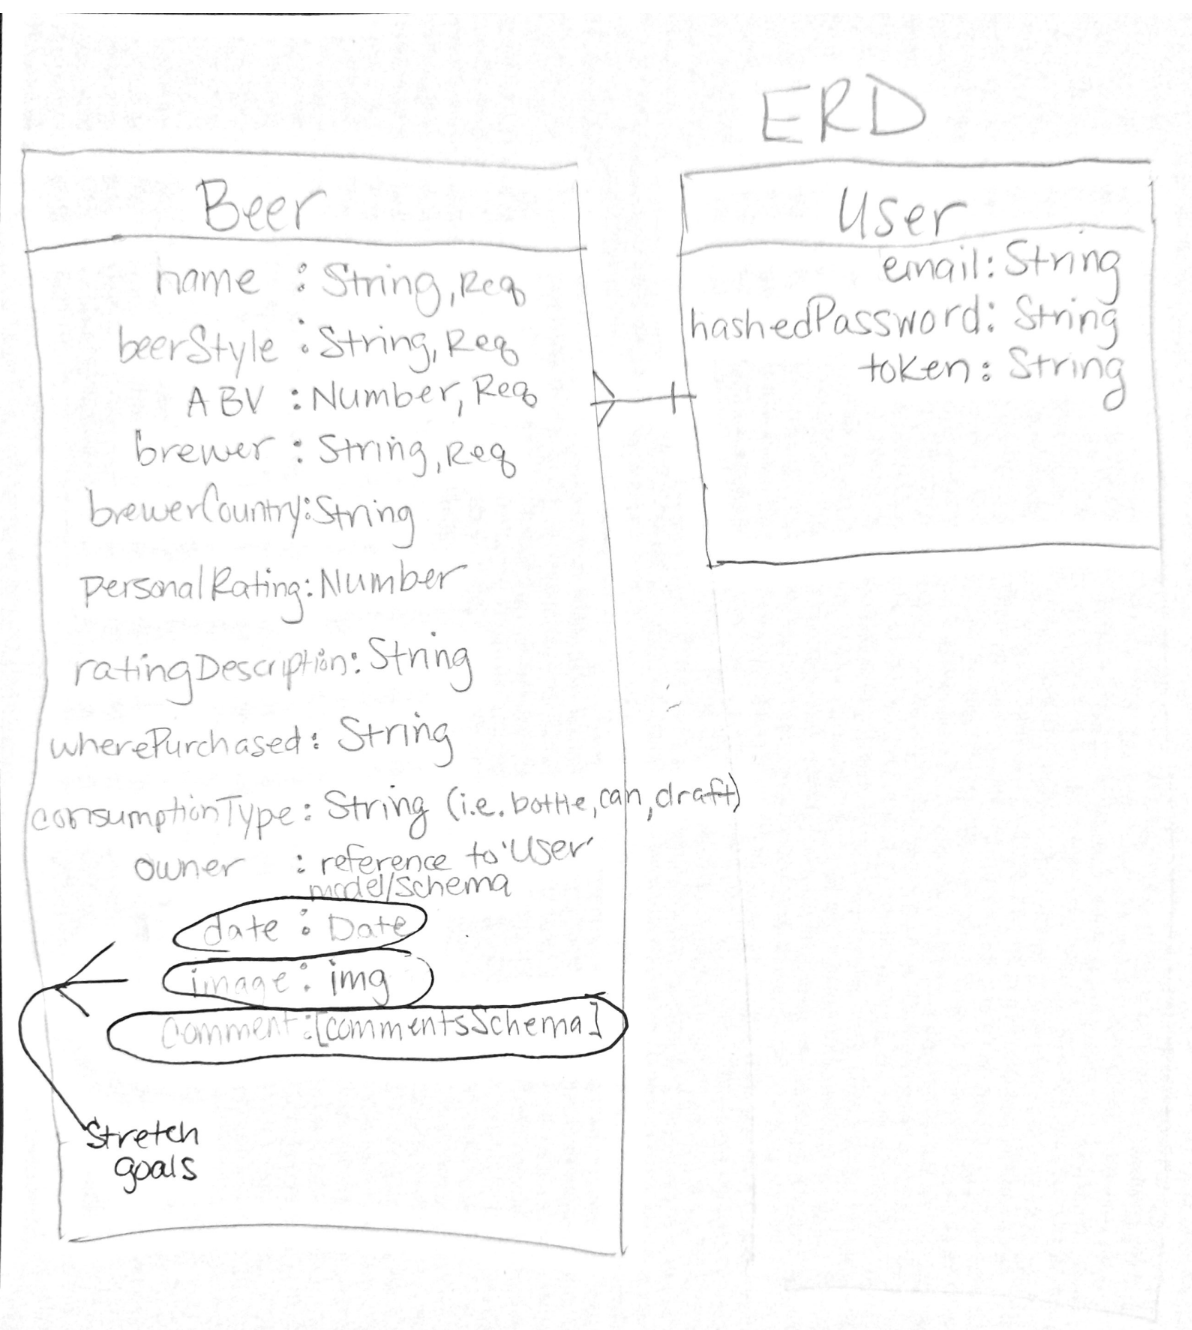 ERD
Beer
name : String, Req
beerStyle : String, Req
ABV : Number, Req
brewer : String, Req
brewerCountry: String
personalRating: Number
ratingDescription: String
wherePurchased: String
consumptionType: String (i.e. bottle, can, draft)
owner : reference to 'User'
model/schema
date : Date
image : img
comment : [commentsSchema]
Stretch
goals
User
email: String
hashedPassword: String
token: String